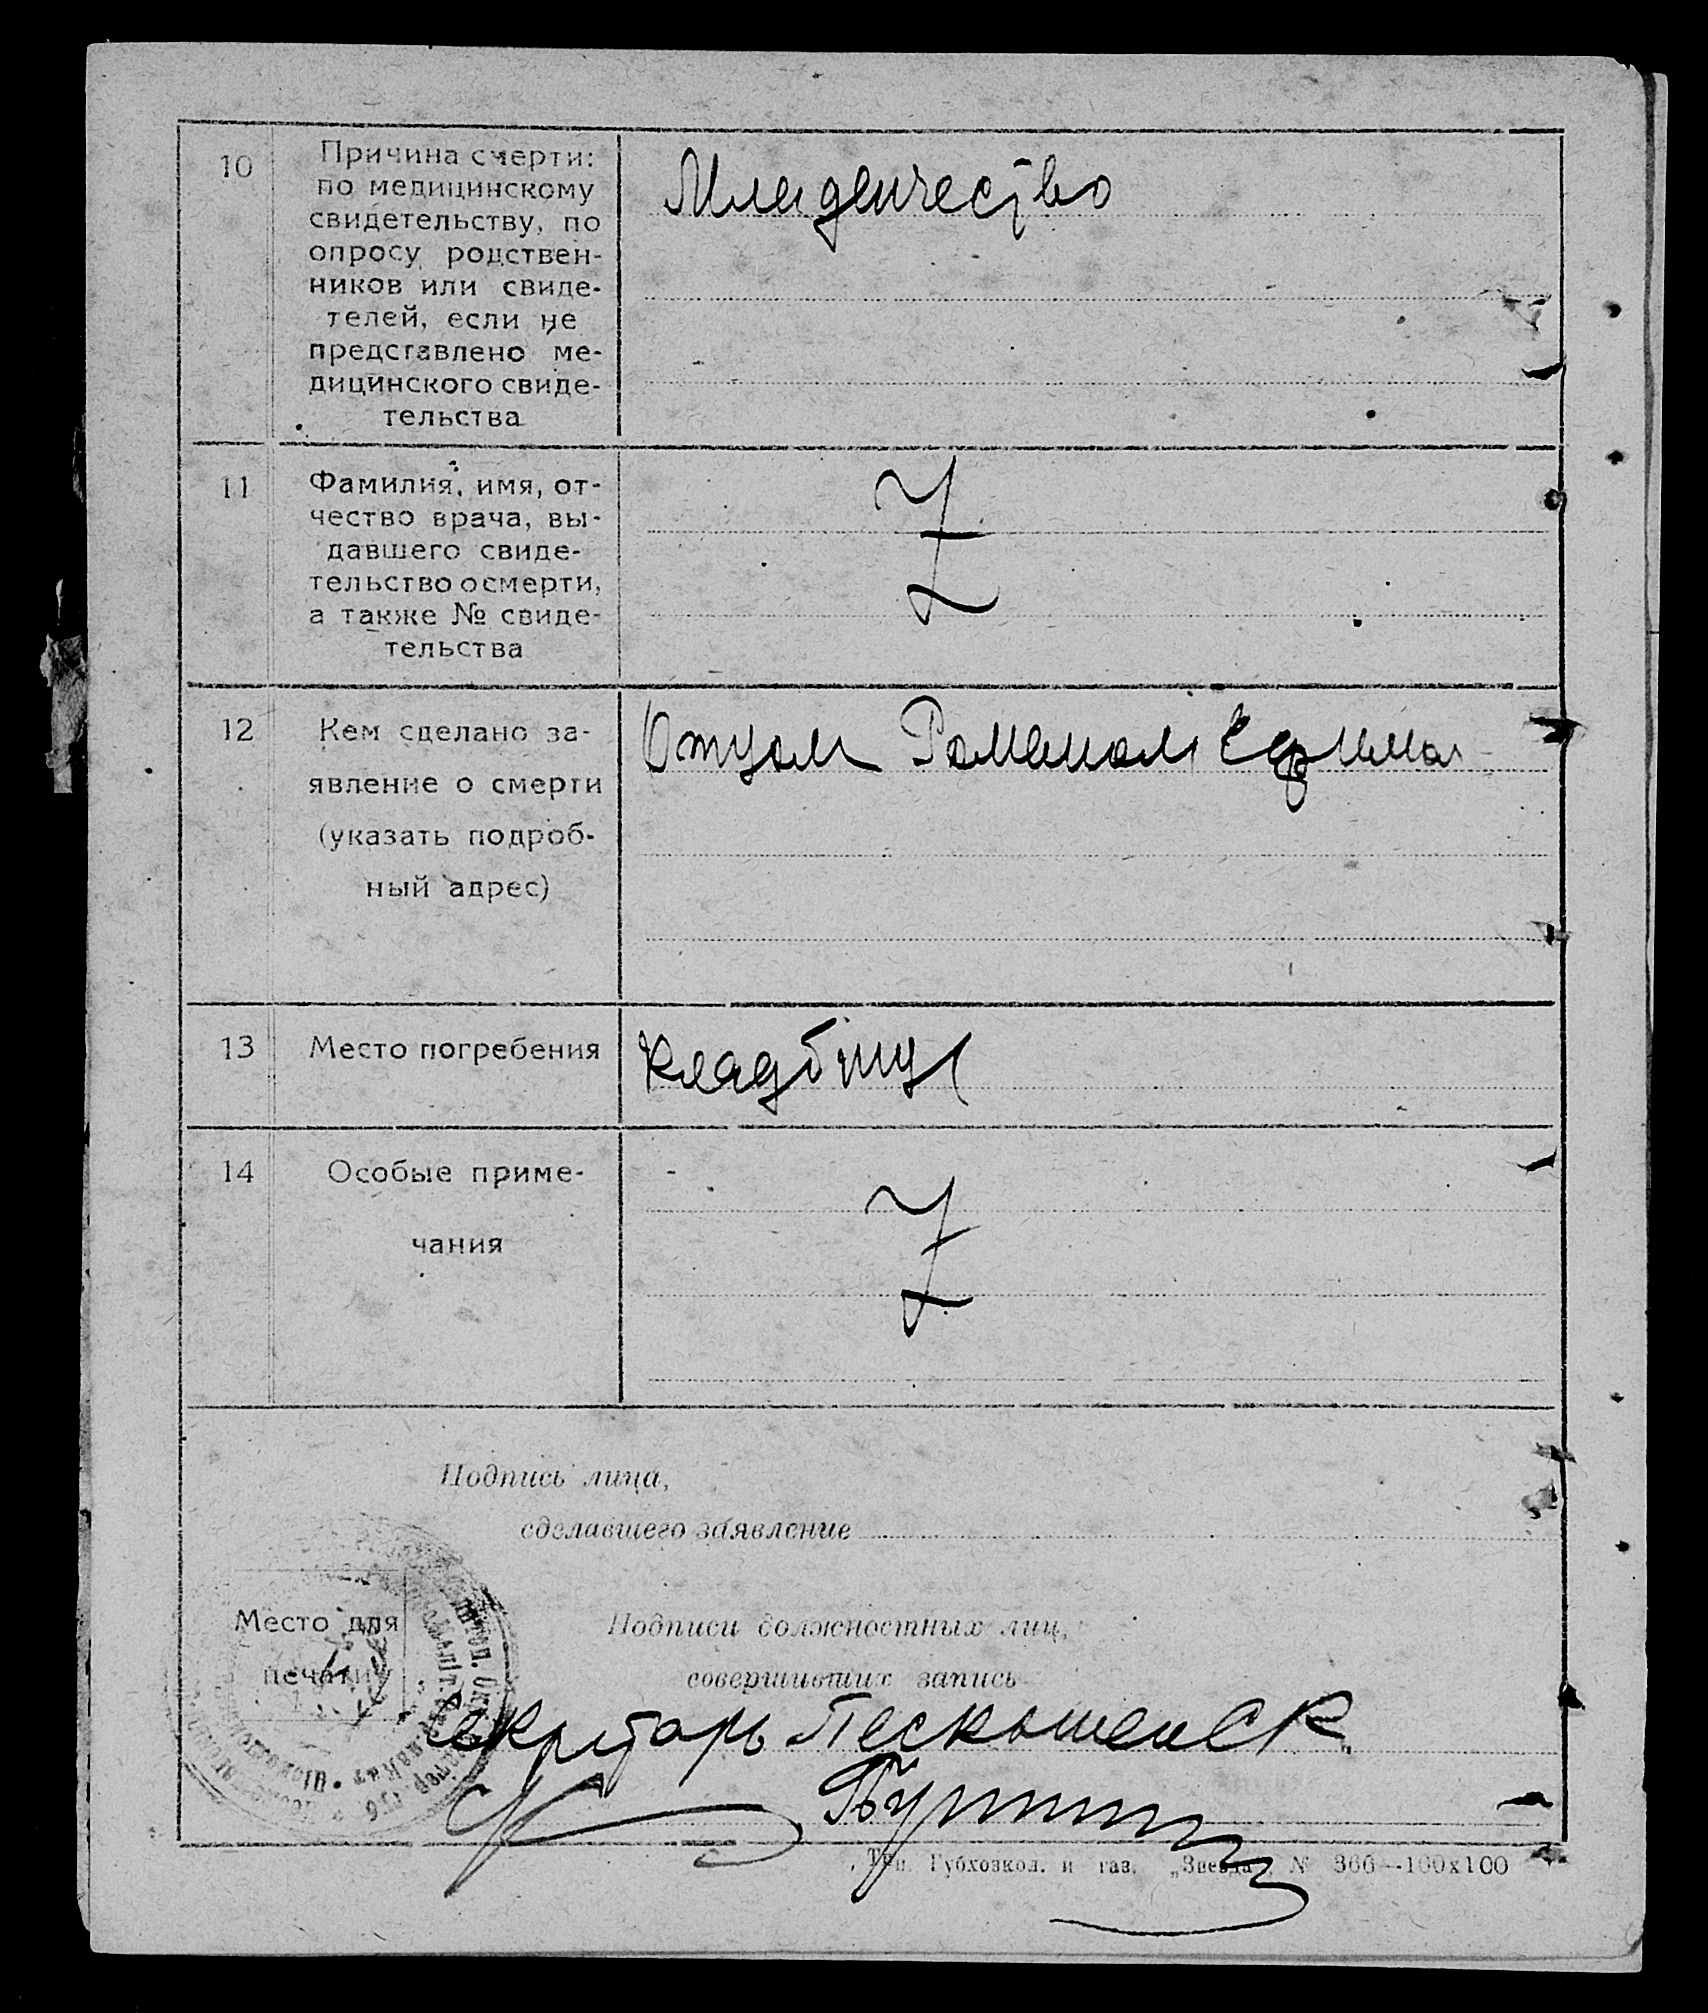 10
Причина смерти:
по медицинскому
свидетельству, по
опросу родствен-
ников или свиде-
телей, если не
представлено ме-
дицинского свиде-
тельства
Младенчество
11
Фамилия, имя, от-
чество врача, вы-
давшего свиде-
тельство о смерти,
а также № свиде-
тельства
Z
12
Кем сделано за-
явление о смерти
(указать подроб-
ный адрес)
Отцом Романом
13
Место погребения
Кладбище
14
Особые приме-
чания
Z
Подпись лица,
сделавшего заявление
Место для
печати
Подписи должностных лиц,
совершивших запись
Секретарь
Тип. Губхозкол. и газ. „Звезда". № 366—100х100